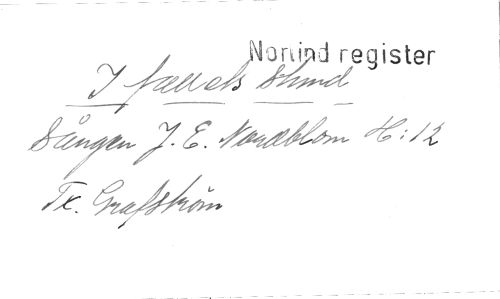 Norlind register
I fjällets stund
Sången J. E. Nordblom H: 12
Tx. Grafström